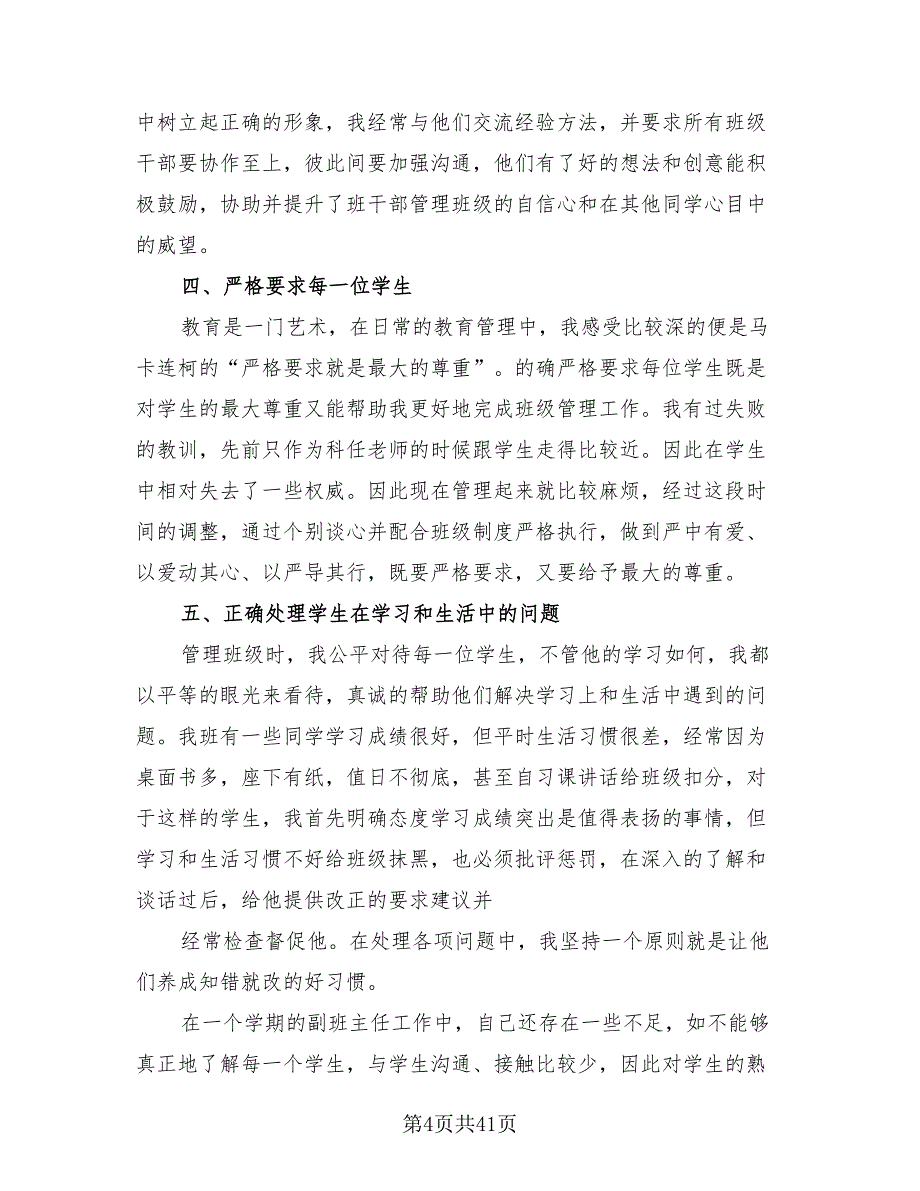 中树立起正确的形象，我经常与他们交流经验方法，并要求所有班级
干部要协作至上，彼此间要加强沟通，他们有了好的想法和创意能积
极鼓励，协助并提升了班干部管理班级的自信心和在其他同学心目中
的威望。
四、严格要求每一位学生
教育是一门艺术，在日常的教育管理中，我感受比较深的便是马
卡连柯的“严格要求就是最大的尊重”。的确严格要求每位学生既是
对学生的最大尊重又能帮助我更好地完成班级管理工作。我有过失败
的教训，先前只作为科任老师的时候跟学生走得比较近。因此在学生
中相对失去了一些权威。因此现在管理起来就比较麻烦，经过这段时
间的调整，通过个别谈心并配合班级制度严格执行，做到严中有爱、
以爱动其心、以严导其行，既要严格要求，又要给予最大的尊重。
五、正确处理学生在学习和生活中的问题
管理班级时，我公平对待每一位学生，不管他的学习如何，我都
以平等的眼光来看待，真诚的帮助他们解决学习上和生活中遇到的问
题。我班有一些同学学习成绩很好，但平时生活习惯很差，经常因为
桌面书多，座下有纸，值日不彻底，甚至自习课讲话给班级扣分，对
于这样的学生，我首先明确态度学习成绩突出是值得表扬的事情，但
学习和生活习惯不好给班级抹黑，也必须批评惩罚，在深入的了解和
谈话过后，给他提供改正的要求建议并
经常检查督促他。在处理各项问题中，我坚持一个原则就是让他
们养成知错就改的好习惯。
在一个学期的副班主任工作中，自己还存在一些不足，如不能够
真正地了解每一个学生，与学生沟通、接触比较少，因此对学生的熟
第4页共41页